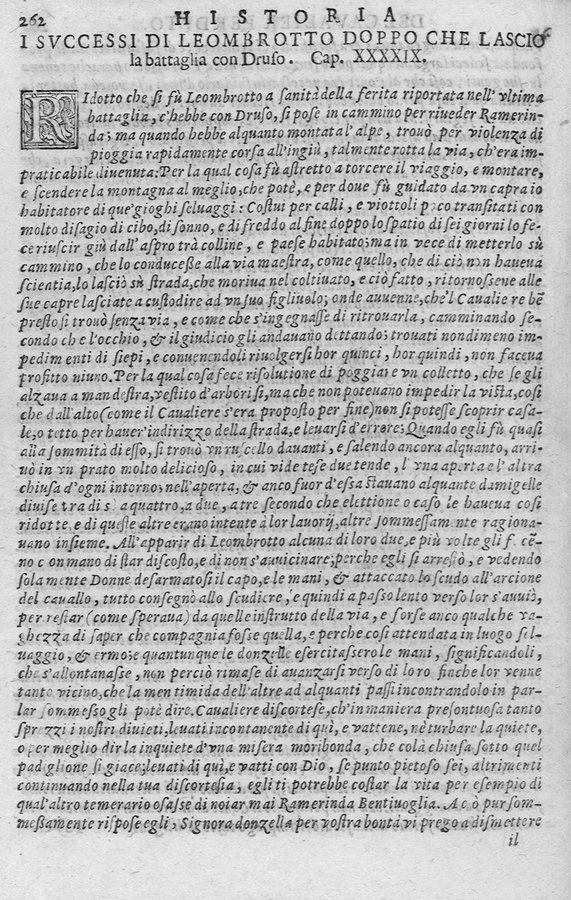 262 HISTORIA
I SVCCESSI DI LEOMBROTTO DOPPO CHE LASCIO
la battaglia con Druso. Cap. XXXXIX.
RIdotto che si fù Leombrotto a sanità della ferita riportata nell'vltima
battaglia, c'hebbe con Druso, si pose in cammino per riueder Ramerin-
da; ma quando hebbe alquanto montata l'alpe, trouò per violenza di
pioggia rapidamente corsa all'ingiù, talmente rotta la via, ch'era im-
praticabile diuenuta: Per la qual cosa fù astretto a torcere il viaggio, e montare,
e scendere la montagna al meglio, che potè, e per doue fù guidato da vn capraio
habitatore di que'gioghi seluaggi: Costui per calli, e viottoli poco transitati con
molto disagio di cibo, di sonno, e di freddo al fine doppo lo spatio di sei giorni lo fe-
ce riuscir giù dall'aspro trà colline, e paese habitato; ma in vece di metterlo sù
cammino, che lo conducesse alla via maestra, come quello, che di ciò non haueua
scientia, lo lasciò sù strada, che moriua nel coltiuato, e ciò fatto, ritornossene alle
sue capre lasciate a custodire ad vn suo figliuolo; onde auuenne, che'l Caualiere bē
presto si trouò senza via, e come che s'ingegnasse di ritrouarla, camminando se-
condo che l'occhio, & il giudicio gli andauano dettando; trouati nondimeno im-
pedimenti di siepi, e conuenendoli riuolgersi hor quinci, hor quindi, non faceua
profitto niuno. Per la qual cosa fece risolutione di poggiare vn colletto, che se gli
alzaua a man destra, vestito d'arbori sì, ma che non poteuano impedir la vista, così
che dall'alto (come il Caualiere s'era proposto per fine) non si potesse scoprir casa-
le, o tetto per hauer'indirizzo della strada, e leuarsi d'errore; Quando egli fù quasi
alla sommità di esso, si trouò vn ruscello dauanti, e salendo ancora alquanto, arri-
uò in vn prato molto delicioso, in cui vide tese due tende, l'vna aperta e l'altra
chiusa d'ogni intorno; nell'aperta, & anco fuor d'essa stauano alquante damigelle
diuise tra di sè a quattro, a due, a tre secondo che elettione o caso le haueua così
ridotte, e di queste altre erano intente a lor lauorij, altre sommessamente ragiona-
uano insieme. All'apparir di Leombrotto alcuna di loro due, e più volte gli fecē-
no con mano di star discosto, e di non s'auuicinare; perche egli si arrestò, e vedendo
solamente Donne desarmatosi il capo, e le mani, & attaccato lo scudo all'arcione
del cauallo, tutto consegnò allo scudiere, e quindi a passo lento verso lor s'auuiò,
per restar (come speraua) da quelle instrutto della via, e forse anco qualche va-
ghezza di saper che compagnia fosse quella, e perche così attendata in luogo sel-
uaggio, & ermo; e quantunque le donzelle esercitassero le mani, significandoli,
che s'allontanasse, non perciò rimase di auanzarsi verso di loro finche lor venne
tanto vicino, che la men timida dell'altre ad alquanti passi incontrandolo in par-
lar sommesso gli potè dire. Caualiere discortese, ch'in maniera presontuosa tanto
sprezzi i nostri diuieti, leuati incontanente di quì, e vattene, nè turbare la quiete,
o per meglio dir la inquiete d'vna misera moribonda, che colà chiusa sotto quel
padiglione si giace; leuati di quì, e vatti con Dio, se punto pietoso sei, altrimenti
continuando nella tua discortesia, egli ti potrebbe costar la vita per esempio di
qual'altro temerario osasse di noiar mai Ramerinda Bentiuoglia. A ciò pur som-
messamente rispose egli, Signora donzella per vostra bontà vi prego a dismettere
il